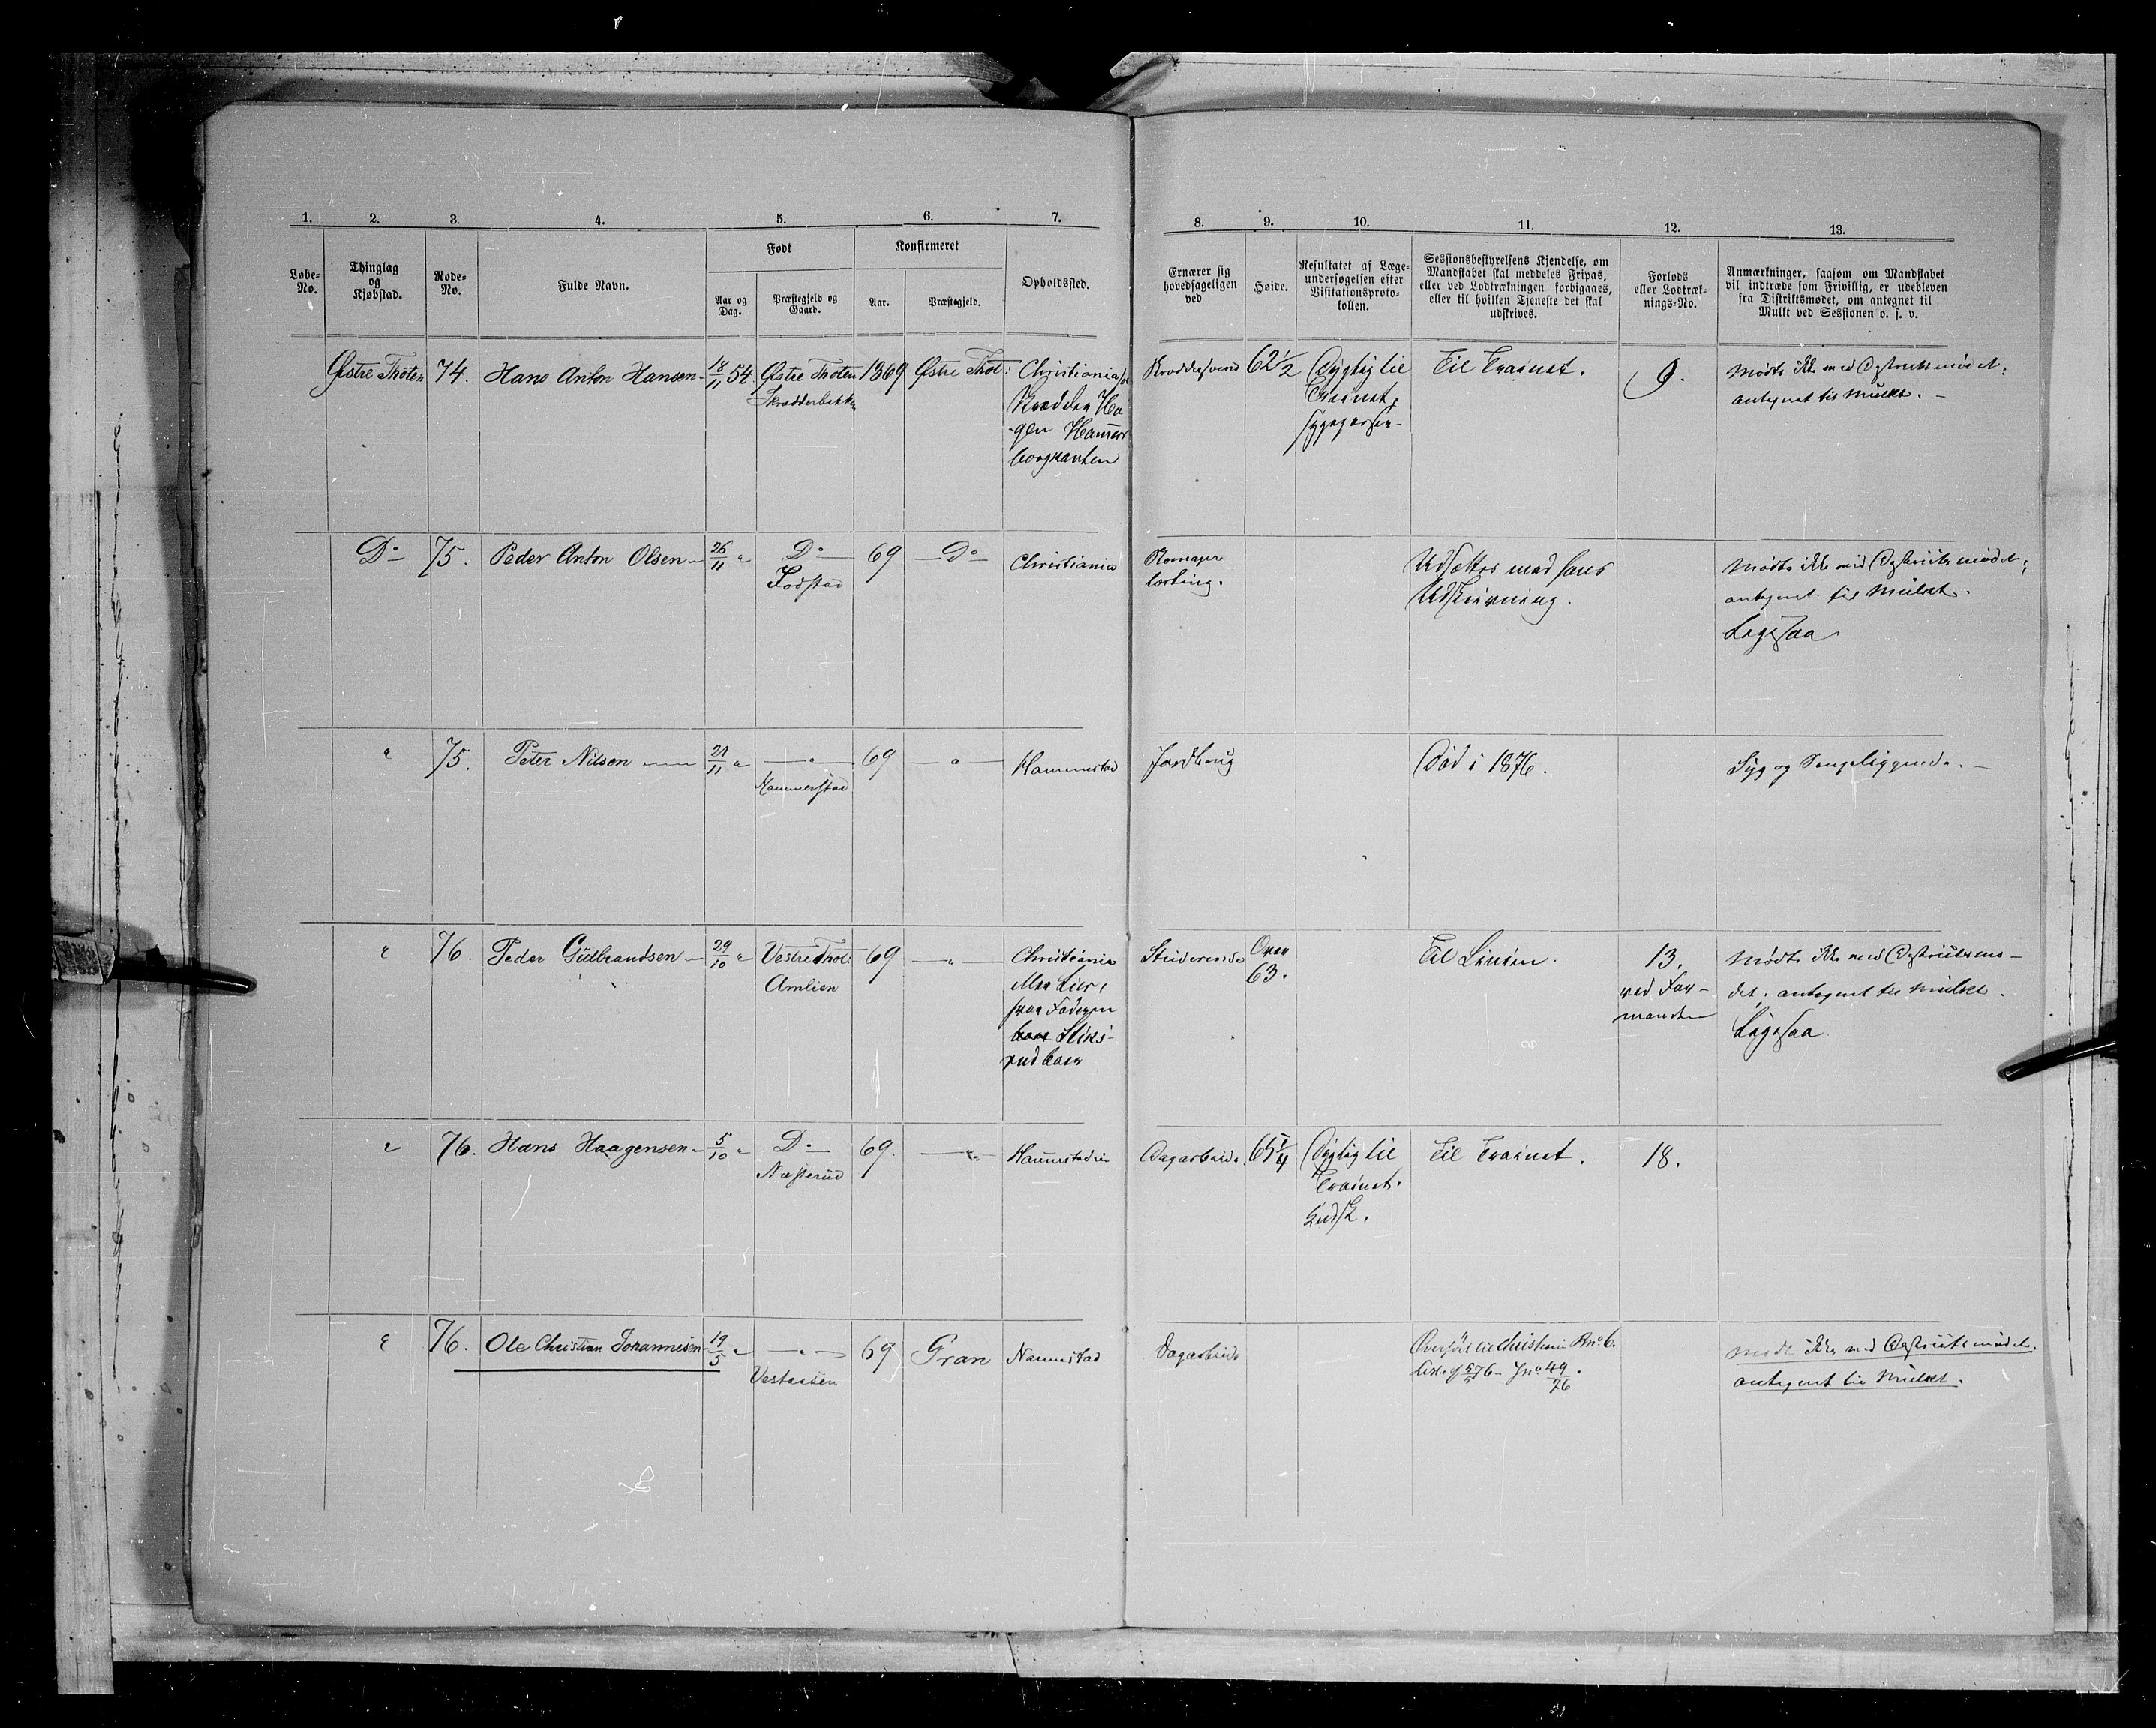 1. 2. 3. 4. 5. 6. 7. 8. 9. 10. 11. 12. 13.
Løbe-No.
Thinglag og Kjøbstad.
Rode-No.
Fulde Navn.
Født
Aar og Dag.
Præstegjeld og Gaard.
Konfirmeret
Aar.
Præstegjeld.
Opholdssted.
Ernærer sig hovedsageligen ved
Høide.
Resultatet af Læge-undersøgelsen efter Visitationsproto-kollen.
Sessionsbestyrelsens Kjendelse, om Mandskabet skal meddeles Fripas, eller ved Lodtrækningen forbigaaes, eller til hvilken Tjeneste det skal udskrives.
Forlods eller Lodtræk-nings-No.
Anmærkninger, saasom om Mandskabet vil indtræde som Frivillig, er udebleven fra Distriktsmødet, om antegnet til Mulkt ved Sessionen o. s. v.
Østre Thoten 74. Hans Anton Hansen 18/11 54. Østre Thoten 1869 Østre Thot: Christiania
Skrædderbakke
62 1/2 Dygtig til Til Trainet. 9. Mødte ikke ved Distriktsmødet,
Trainet,
antegnet til Mulkt. -
Do 75. Peder Anton Olsen 26/11 " Do 69 Do Christiania
Fodstad
Udsættes med hans
Udskrivning.
Mødte ikke ved Distriktsmødet;
antegnet til Mulkt.
Ligesaa
" 75. Peter Nilsen 21/11 " " 69 " Hammestad
Hammerstad
Jordbrug
Død i 1876.
Syg og Sengeliggende. -
" 76. Peder Gulbrandsen 29/10 " Vestre Thot: 69 " Christiania
Amlien
Studerende Over
63.
Til Linien. 13.
ved For-
manden
Mødte ikke ved Distriktsmø-
det, antegnet til Mulkt.
Ligesaa
" 76. Hans Haagensen 5/10 " Do 69. "
Næsterud
Dagarbeide. 65 1/4 Dygtig til Til Trainet. 18.
Trainet.
" 76. Ole Christian Johannesen 19/5 " " 69 Gran Hammestad
Vestaasen
Dagarbeide
Overført til Christiania
49/76
Mødte ikke ved Distriktsmødet.
antegnet til Mulkt.